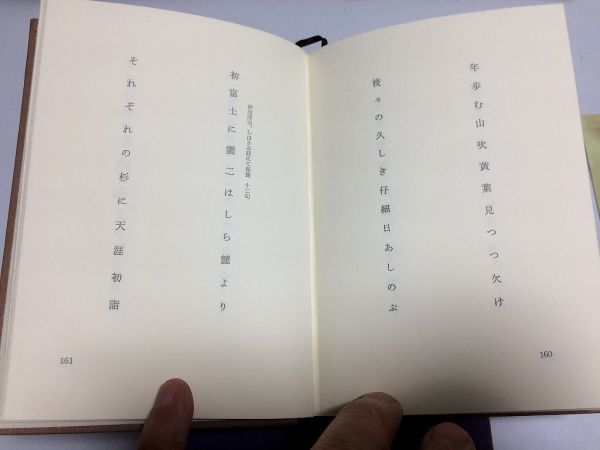 年歩む山吹黄葉見つつ欠け
枝々の久しき仔細日あしのぶ
160
初富士に雲二はしら麓より
それぞれの杉に天涯初詣
161